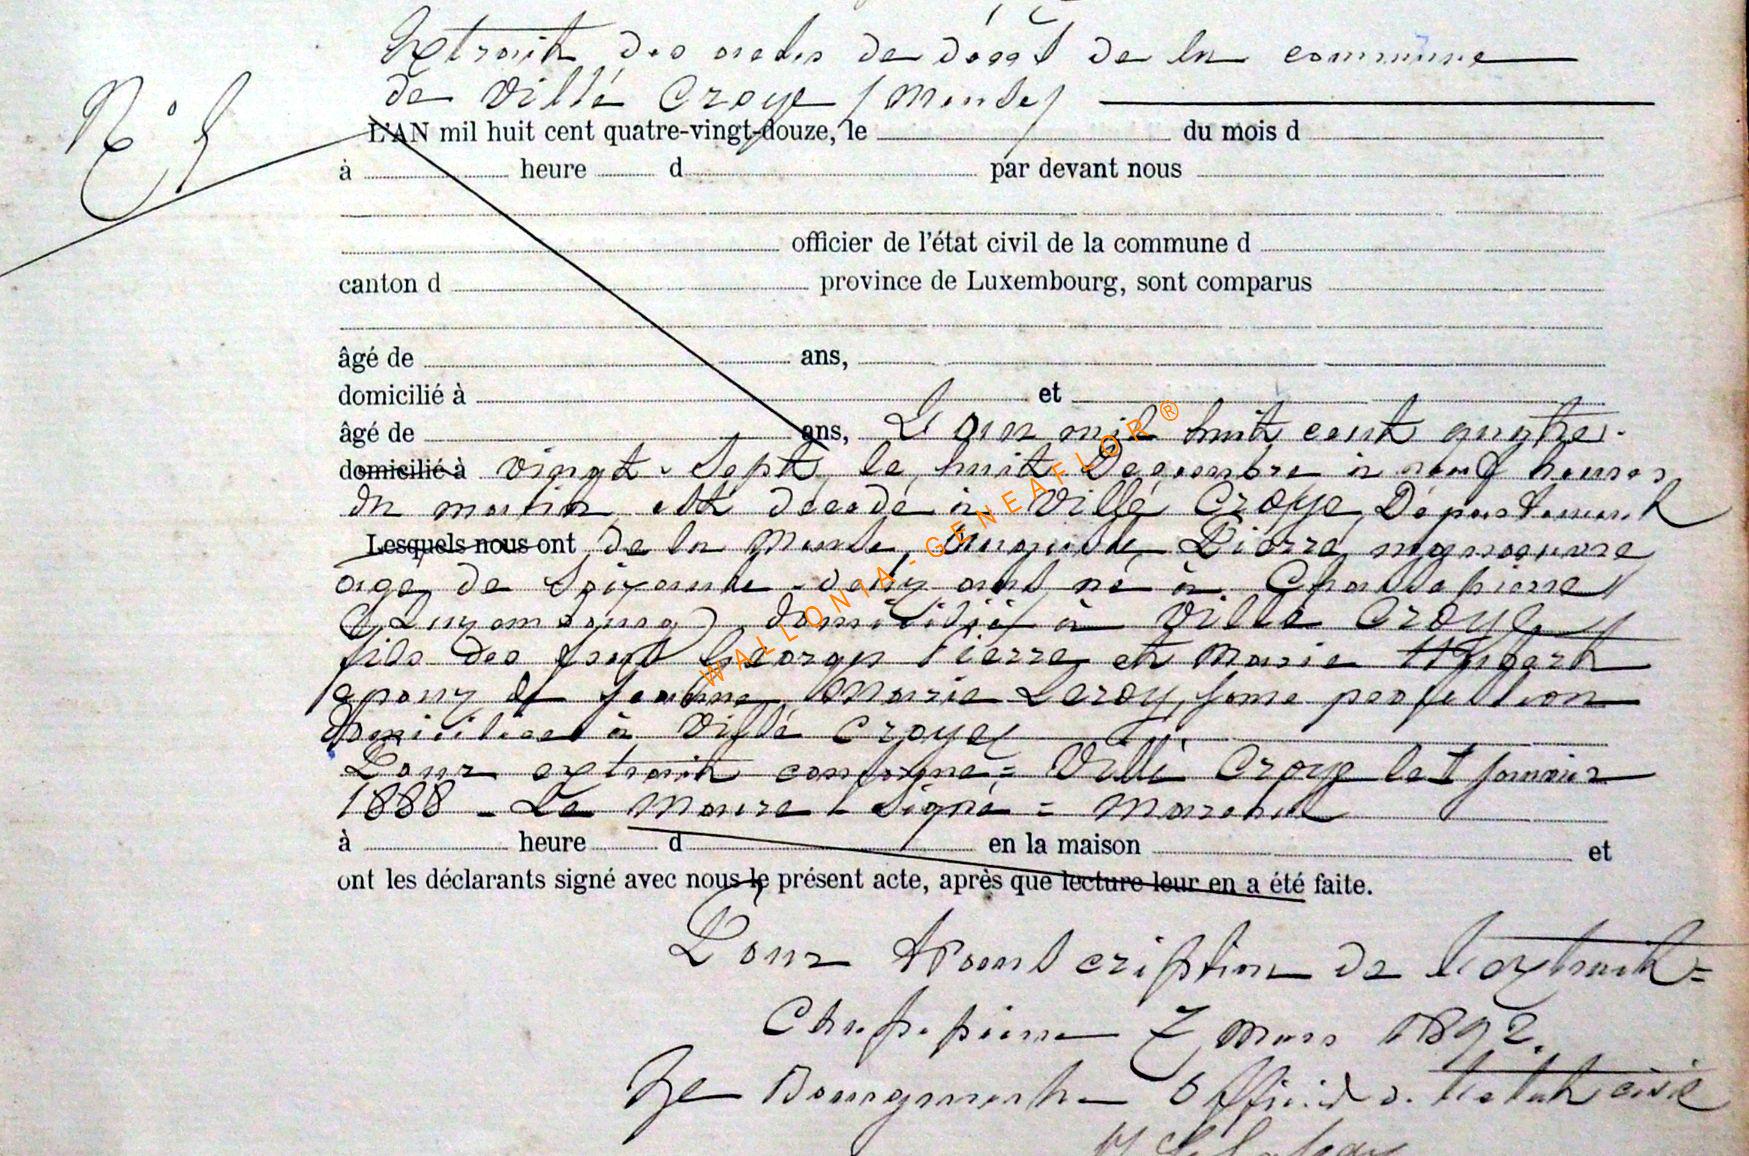 Extrait des actes de décès de la commune
de Villé Croye (Meuse)
N° 5
L'AN mil huit cent quatre-vingt-douze, le du mois d
à heure d par devant nous
officier de l'état civil de la commune d
canton d province de Luxembourg, sont comparus
âgé de ans,
domicilié à et
âgé de ans, L'an mil huit cent quatre-
domicilié à vingt-sept, le huit Décembre à neuf heures
du matin est décédé à Villé Croye, Département
Lesquels nous ont de la Meuse, Pierre, manoeuvre
age de soixante-deux ans né à Chassepierre
(Luxembourg) domicilié à Villé Croye
fils des feus Georges Pierre et Marie Hubert
epoux de Marie Leroy, sans profession
domiciliée à Villé Croye
Pour extrait conforme = Villé Croye le 1 janvier
1888 - Le Maire Signé = Marechal
à heure d en la maison et
ont les déclarants signé avec nous le présent acte, après que lecture leur en a été faite.
Pour transcription de l'extrait =
Chassepierre 7 mars 1892.
Le Bourgmestre Officier de l'état civil
WALLONIA-GENEAFLOR ®